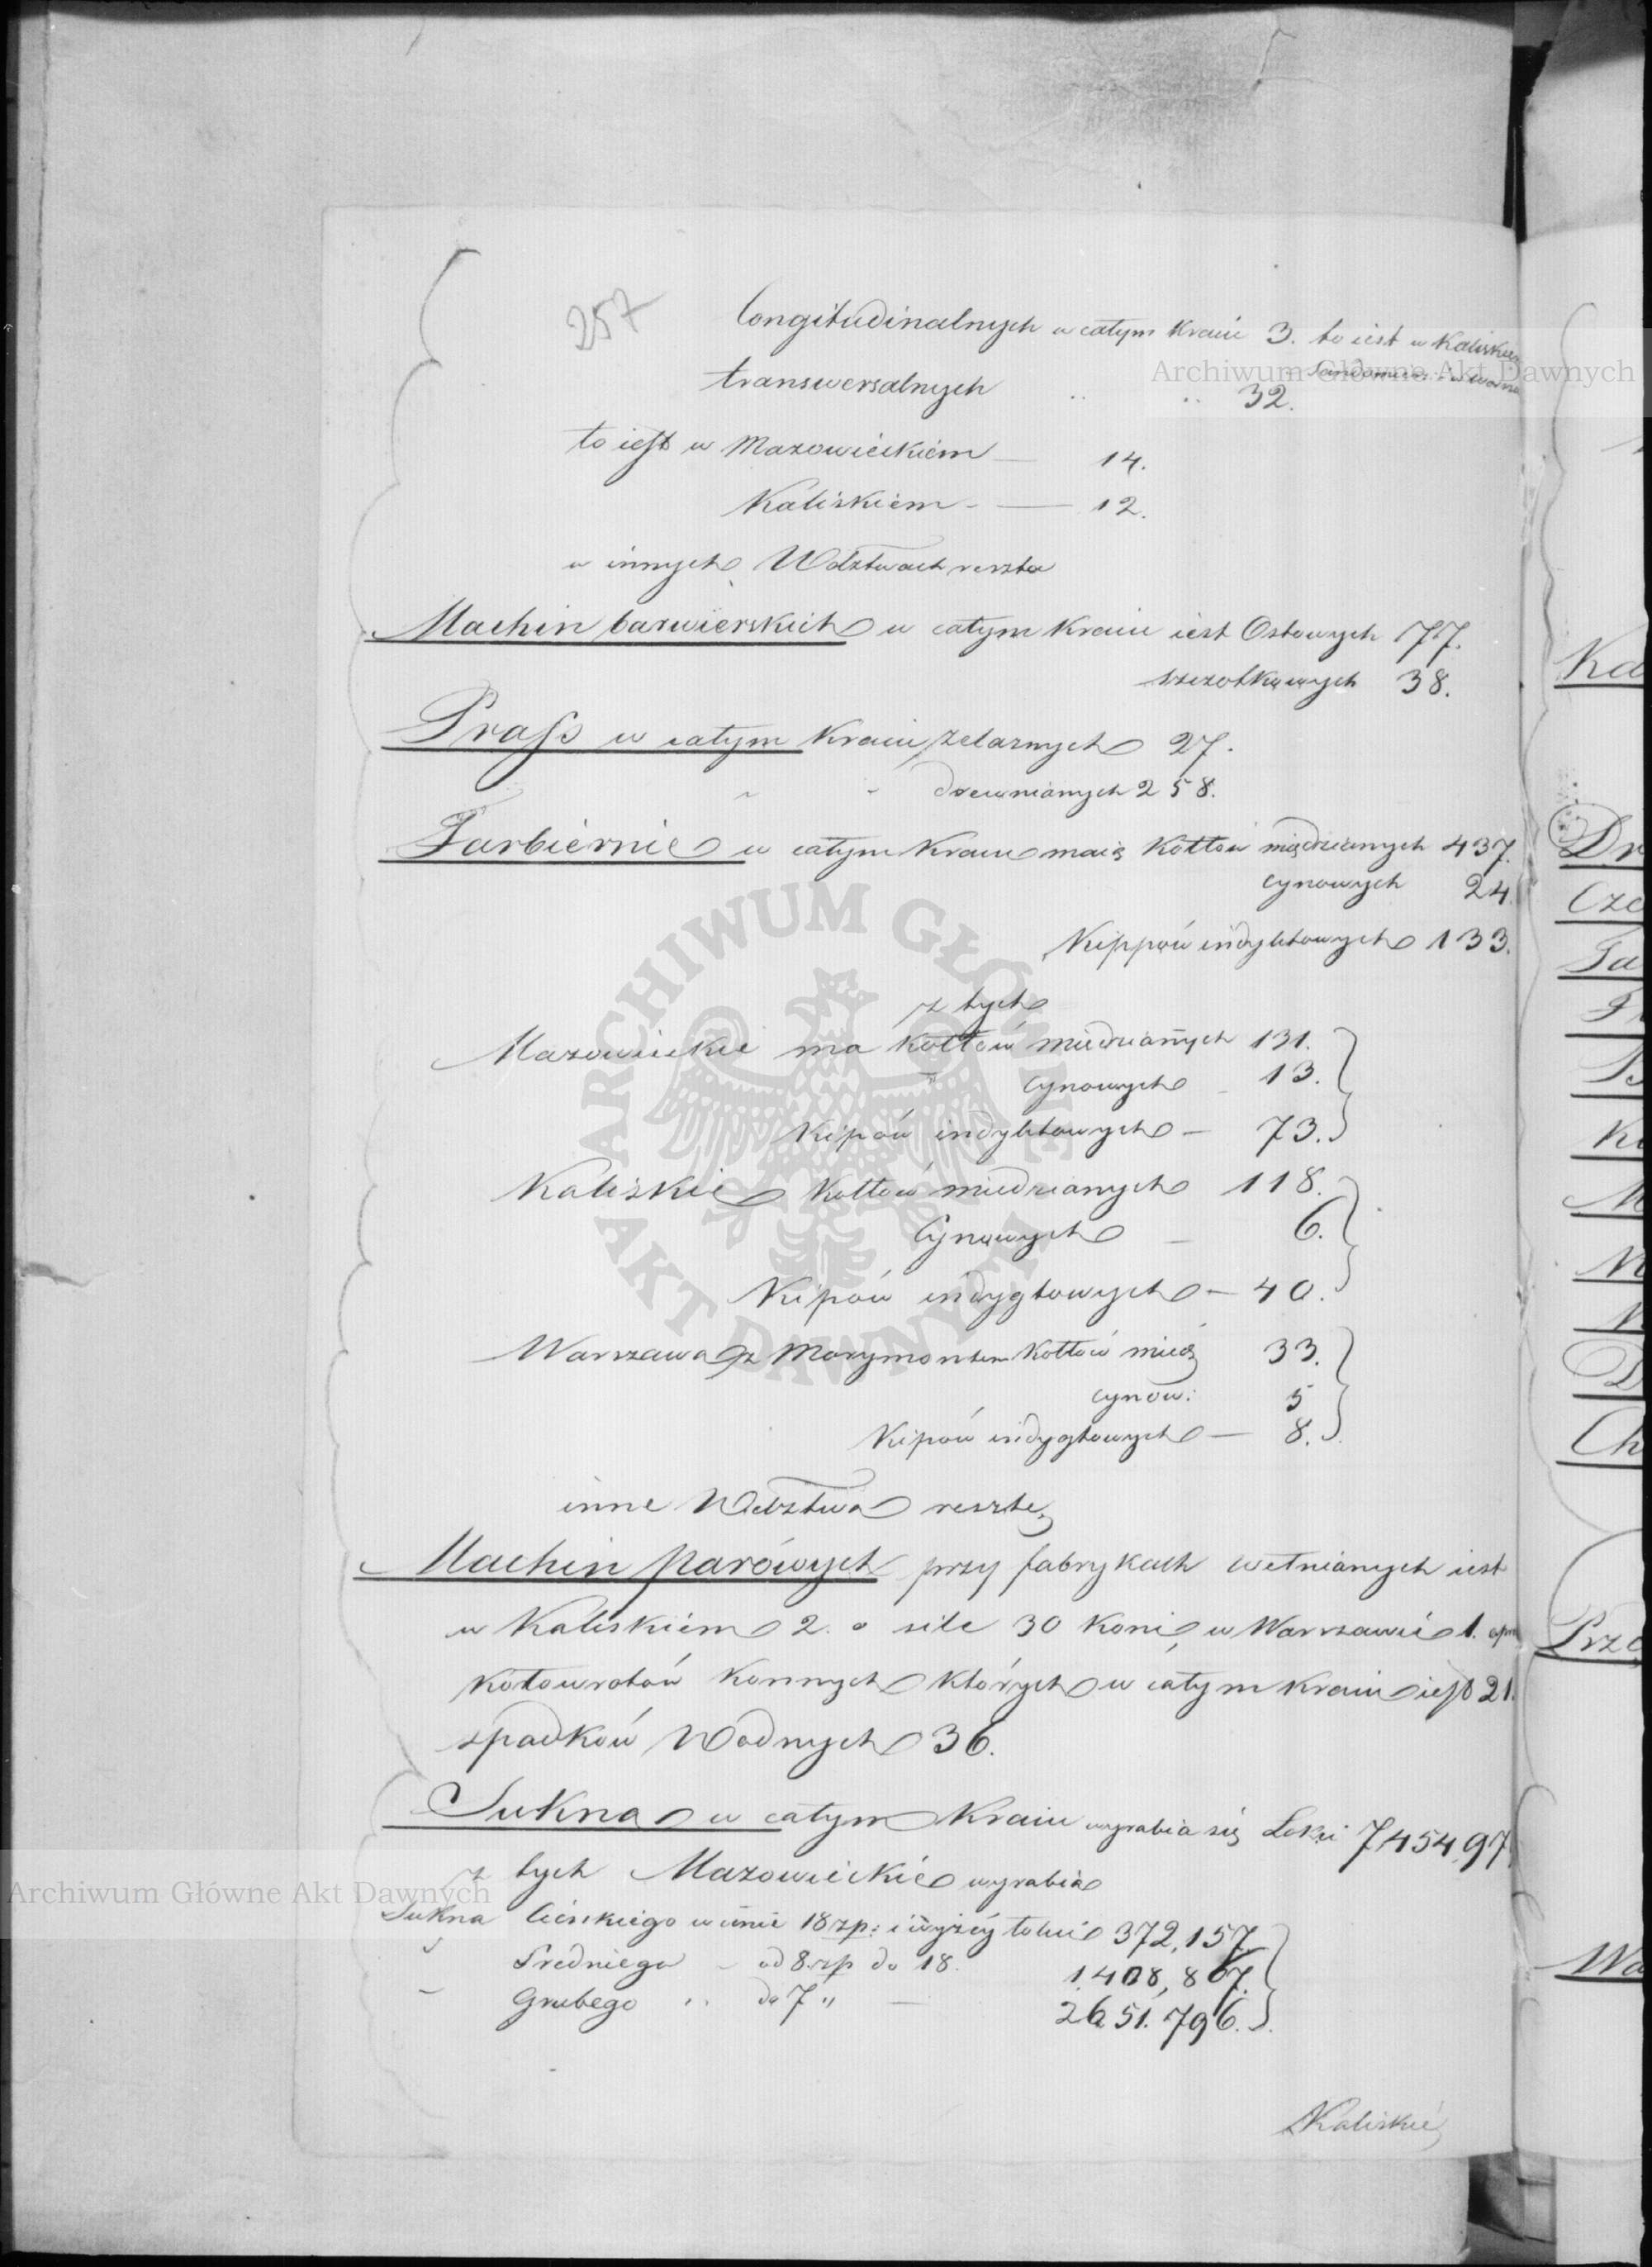 257
longitudinalnych w całym Kraiu 3. to iest w Kaliskiem
Sandomier: i w Warsza
transwersalnych " " 32.
to iest w Mazowieckiem — 14.
Kaliskiem - — 12.
w innych Wdztwach reszta
Machin barwierskich w całym Kraiu iest Ostowych 77.
szczotkowych 38.
Prass w całym Kraiu żelaznych 27.
" " drewnianych 258.
Farbiernie w całym Kraiu maią Kotłów miedzianych 437.
cynowych 24
Kippów indychtowych 133.
z tych
Mazowieckie ma Kotłów miedzianych 131.
" cynowych - 13.
Kipów indychtowych — 73.
Kaliskie Kotłów miedzianych 118.
Cynowych — 6.
Kipów indygtowych — 40.
Warszawa z Marymontem Kotłów mied 33.
cynow: 5
Kipów indygtowych — 8.
inne Wdztwa resztę
Machin parowych przy fabrykach wełnianych iest
w Kaliskiem 2. o sile 30 Koni, w Warszawie 1.
Kołowrotów Konnych których w całym Kraiu iest 21.
spadków Wodnych 36.
Sukna w całym Kraiu wyrabia się Łokci 7,454,97
z tych Mazowieckie wyrabia
Sukna Cienkiego w cenie 18 zp: i wyżéy łokcie 372,157.
" Sredniego - od 8 zp do 18. 1,408,867.
" Grubego " do 7 " — 2651.796.
Kaliskie
Archiwum Główne Akt Dawnych
ARCHIWUM GŁÓWNE AKT DAWNYCH
Archiwum Główne Akt Dawnych
Ka
Dr
Cze
Fa
Fr
Ki
M
N
D
Ch
Prze
Wa